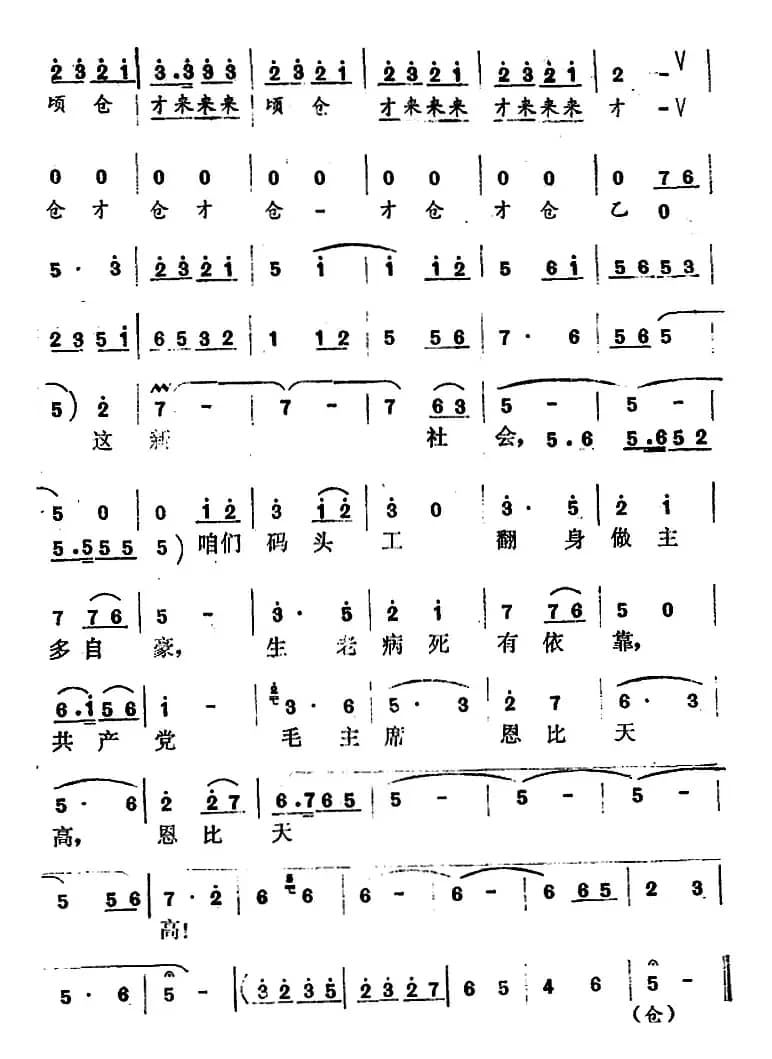 2 3 2 1 | 3 . 3 3 3 | 2 3 2 1 | 2 3 2 1 | 2 3 2 1 | 2 - V |
顷 仓 才来来来 顷 仓 才来来来 才来来来 才 - V
0 0 | 0 0 | 0 0 | 0 0 | 0 0 | 0 7 6 |
仓 才 仓 才 仓 - 才 仓 才 仓 乙 0
5 · 3 | 2 3 2 1 | 5 1 | 1 1 2 | 5 6 1 | 5 6 5 3 |
2 3 5 1 | 6 5 3 2 | 1 1 2 | 5 5 6 | 7 · 6 | 5 6 5 |
5 ) 2 | 7 - | 7 - | 7 6 3 | 5 - | 5 - |
这 新 社 会, 5 . 6 5 . 6 5 2
5 0 | 0 1 2 | 3 1 2 | 3 0 | 3 · 5 | 2 1 |
5 . 5 5 5 5 ) 咱们 码 头 工 翻 身 做 主
7 7 6 | 5 - | 3 · 5 | 2 1 | 7 7 6 | 5 0 |
多 自 豪, 生 老 病 死 有 依 靠,
6 . 1 5 6 | 1 - | 2 3 · 6 | 5 · 3 | 2 7 | 6 · 3 |
共 产 党 毛 主 席 恩 比 天
5 · 6 | 2 2 7 | 6 . 7 6 5 | 5 - | 5 - | 5 - |
高, 恩 比 天
5 5 6 | 7 · 2 | 6 6 | 6 - | 6 - | 6 6 5 | 2 3 |
高!
5 · 6 | 5 - | ( 3 2 3 5 | 2 3 2 7 | 6 5 | 4 6 | 5 - ‖
(仓)